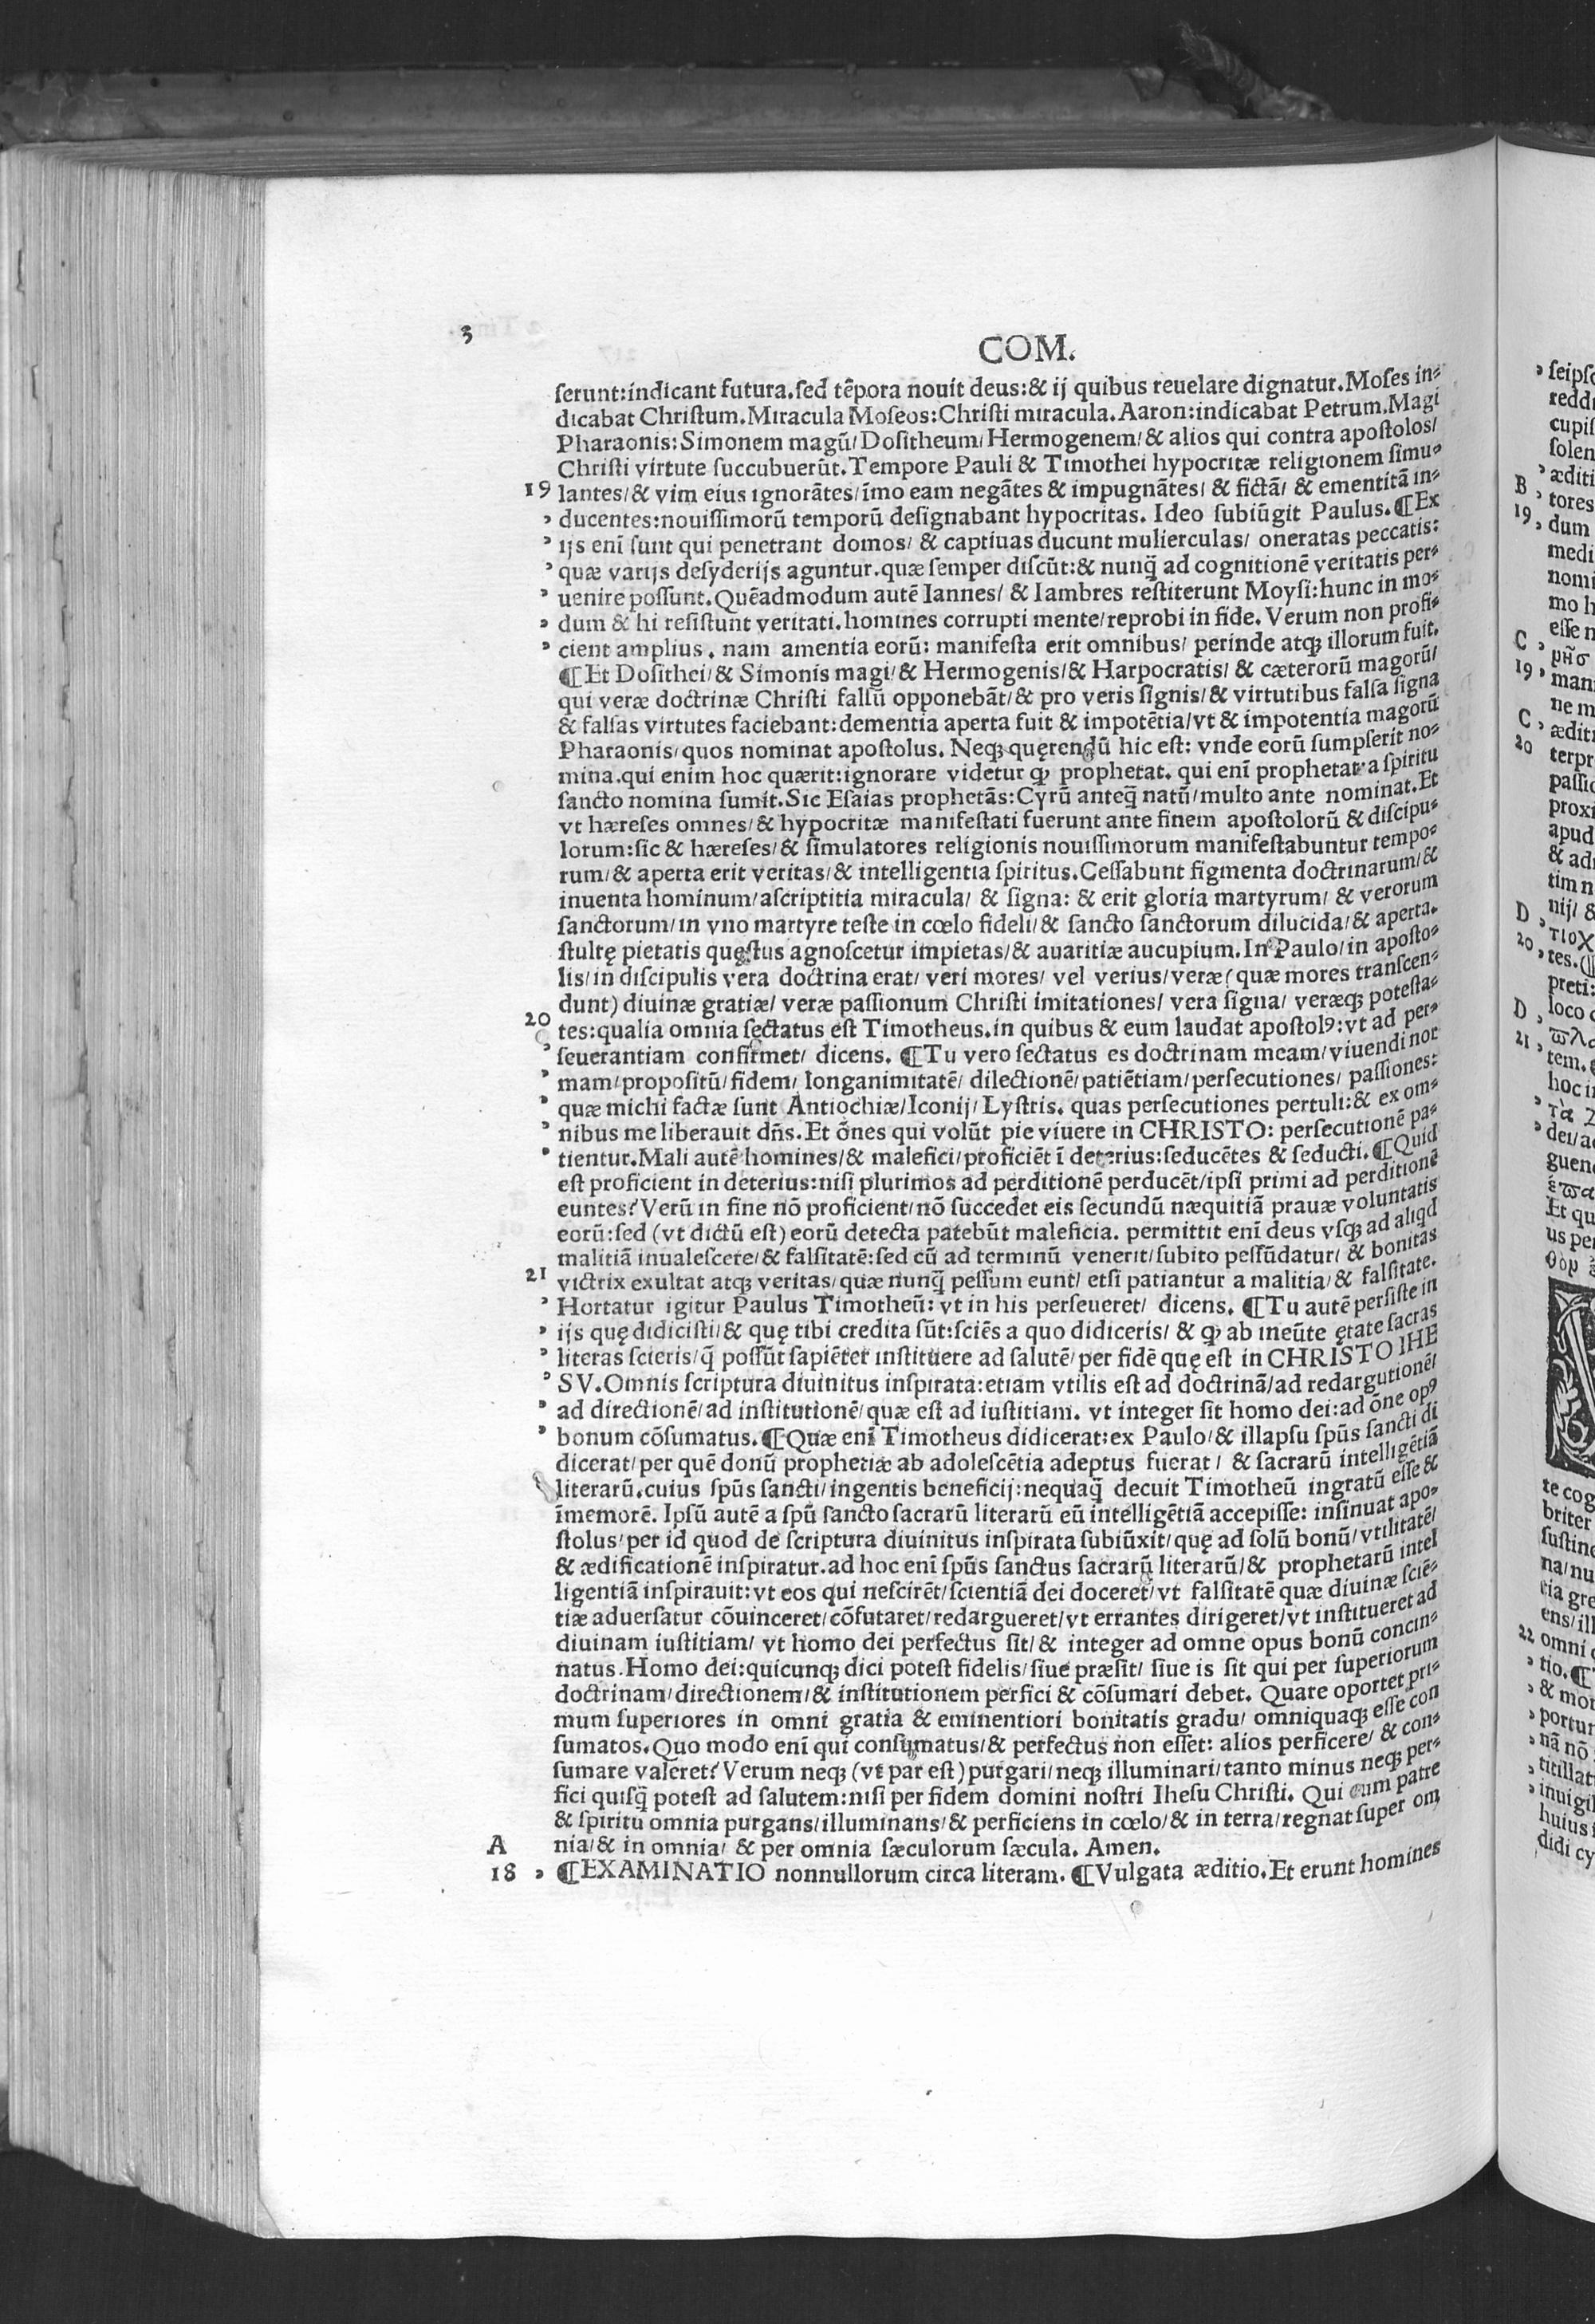 3
COM.
serunt:indicant futura.sed tēpora nouit deus:& ij quibus reuelare dignatur.Moses in-
dicabat Christum.Miracula Moseos:Christi miracula.Aaron:indicabat Petrum.Magi
Pharaonis:Simonem magū/Dositheum/Hermogenem/& alios qui contra apostolos/
Christi virtute succubuerūt.Tempore Pauli & Timothei hypocritæ religionem simu-
19 lantes/& vim eius ignorātes/īmo eam negātes & impugnātes/ & fictā/ & ementitā in-
ducentes:nouissimorū temporū designabant hypocritas. Ideo subiūgit Paulus.¶Ex
ijs enī sunt qui penetrant domos/ & captiuas ducunt mulierculas/ oneratas peccatis:
quæ varijs desyderijs aguntur.quæ semper discūt:& nunq̄ ad cognitionē veritatis per-
uenire possunt.Quēadmodum autē Iannes/ & Iambres restiterunt Moysi:hunc in mo-
dum & hi resistunt veritati.homines corrupti mente/reprobi in fide. Verum non profi-
cient amplius. nam amentia eorū: manifesta erit omnibus/ perinde atq; illorum fuit.
¶Et Dosithei/& Simonis magi/& Hermogenis/& Harpocratis/ & cæterorū magorū/
qui veræ doctrinæ Christi falsū opponebāt/& pro veris signis/& virtutibus falsa signa
& falsas virtutes faciebant:dementia aperta fuit & impotētia/vt & impotentia magorū
Pharaonis/quos nominat apostolus. Neq; quęrendū hic est: vnde eorū sumpserit no-
mina.qui enim hoc quærit:ignorare videtur ꝙ prophetat. qui enī prophetat a spiritu
sancto nomina sumit.Sic Esaias prophetās:Cyrū anteq̄ natū/multo ante nominat.Et
vt hæreses omnes/& hypocritæ manifestati fuerunt ante finem apostolorū & discipu-
lorum:sic & hæreses/& simulatores religionis nouissimorum manifestabuntur tempo-
rum/& aperta erit veritas/& intelligentia spiritus.Cessabunt figmenta doctrinarum/&
inuenta hominum/ascriptitia miracula/ & signa: & erit gloria martyrum/ & verorum
sanctorum/in vno martyre teste in cœlo fideli/& sancto sanctorum dilucida/& aperta.
stultę pietatis quęstus agnoscetur impietas/& auaritiæ aucupium.In Paulo/in aposto-
lis/in discipulis vera doctrina erat/ veri mores/ vel verius/veræ(quæ mores transcen-
dunt) diuinæ gratiæ/ veræ passionum Christi imitationes/ vera signa/ veræq; potesta-
20 tes:qualia omnia sectatus est Timotheus.in quibus & eum laudat apostolꝰ:vt ad per-
seuerantiam confirmet/ dicens. ¶Tu vero sectatus es doctrinam meam/viuendi nor
mam/propositū/fidem/ longanimitatē/ dilectionē/patiētiam/persecutiones/ passiones:
quæ michi factæ sunt Antiochiæ/Iconij/Lystris. quas persecutiones pertuli:& ex om-
nibus me liberauit dn̄s.Et ōnes qui volūt pie viuere in CHRISTO: persecutionē pa-
tientur.Mali autē homines/& malefici/proficiēt ī deterius:seducētes & seducti.¶Quid
est proficient in deterius:nisi plurimos ad perditionē perducēt/ipsi primi ad perditionē
euntes? Verū in fine nō proficient/nō succedet eis secundū næquitiā prauæ voluntatis
eorū:sed (vt dictū est) eorū detecta patebūt maleficia. permittit enī deus vsq; ad aliqd
malitiā inualescere/& falsitatē:sed cū ad terminū venerit/subito pessūdatur/ & bonitas
21 victrix exultat atq; veritas/quæ nunq̄ pessum eunt/ etsi patiantur a malitia/& falsitate.
Hortatur igitur Paulus Timotheū: vt in his perseueret/ dicens. ¶Tu autē persiste in
ijs quę didicisti/& quę tibi credita sūt:sciēs a quo didiceris/ & ꝙ ab ineūte ętate sacras
literas scieris/q̄ possūt sapiēter instituere ad salutē/per fidē quę est in CHRISTO IHE
SV.Omnis scriptura diuinitus inspirata:etiam vtilis est ad doctrinā/ad redargutionē/
ad directionē/ad institutionē/quæ est ad iustitiam. vt integer sit homo dei:ad ōne opꝰ
bonum cōsumatus.¶Quæ enī Timotheus didicerat:ex Paulo/& illapsu spūs sancti di
dicerat/per quē donū prophetiæ ab adolescētia adeptus fuerat/ & sacrarū intelligētiā
literarū.cuius spūs sancti/ingentis beneficij:nequaq̄ decuit Timotheū ingratū esse &
īmemorē. Ipsū autē a spū sancto sacrarū literarū eū intelligētiā accepisse: insinuat apo-
stolus/per id quod de scriptura diuinitus inspirata subiūxit/quę ad solū bonū/vtilitatē/
& ædificationē inspiratur.ad hoc enī spūs sanctus sacrarū literarū/& prophetarū intel
ligentiā inspirauit:vt eos qui nescirēt/scientiā dei doceret/vt falsitatē quæ diuinæ sciē-
tiæ aduersatur cōuinceret/cōfutaret/redargueret/vt errantes dirigeret/vt institueret ad
diuinam iustitiam/ vt homo dei perfectus sit/& integer ad omne opus bonū concin-
natus.Homo dei:quicunq; dici potest fidelis/siue præsit/ siue is sit qui per superiorum
doctrinam/directionem/& institutionem perfici & cōsumari debet. Quare oportet pri-
mum superiores in omni gratia & eminentiori bonitatis gradu/ omniquaq; esse con
sumatos.Quo modo enī qui consumatus/& perfectus non esset: alios perficere/ & con-
sumare valeret? Verum neq; (vt par est) purgari/neq; illuminari/tanto minus neq; per-
fici quisq̄ potest ad salutem:nisi per fidem domini nostri Ihesu Christi. Qui cum patre
& spiritu omnia purgans/illuminans/& perficiens in cœlo/& in terra/regnat super om
A nia/& in omnia/ & per omnia sæculorum sæcula. Amen.
18 ¶EXAMINATIO nonnullorum circa literam. ¶Vulgata æditio.Et erunt homines